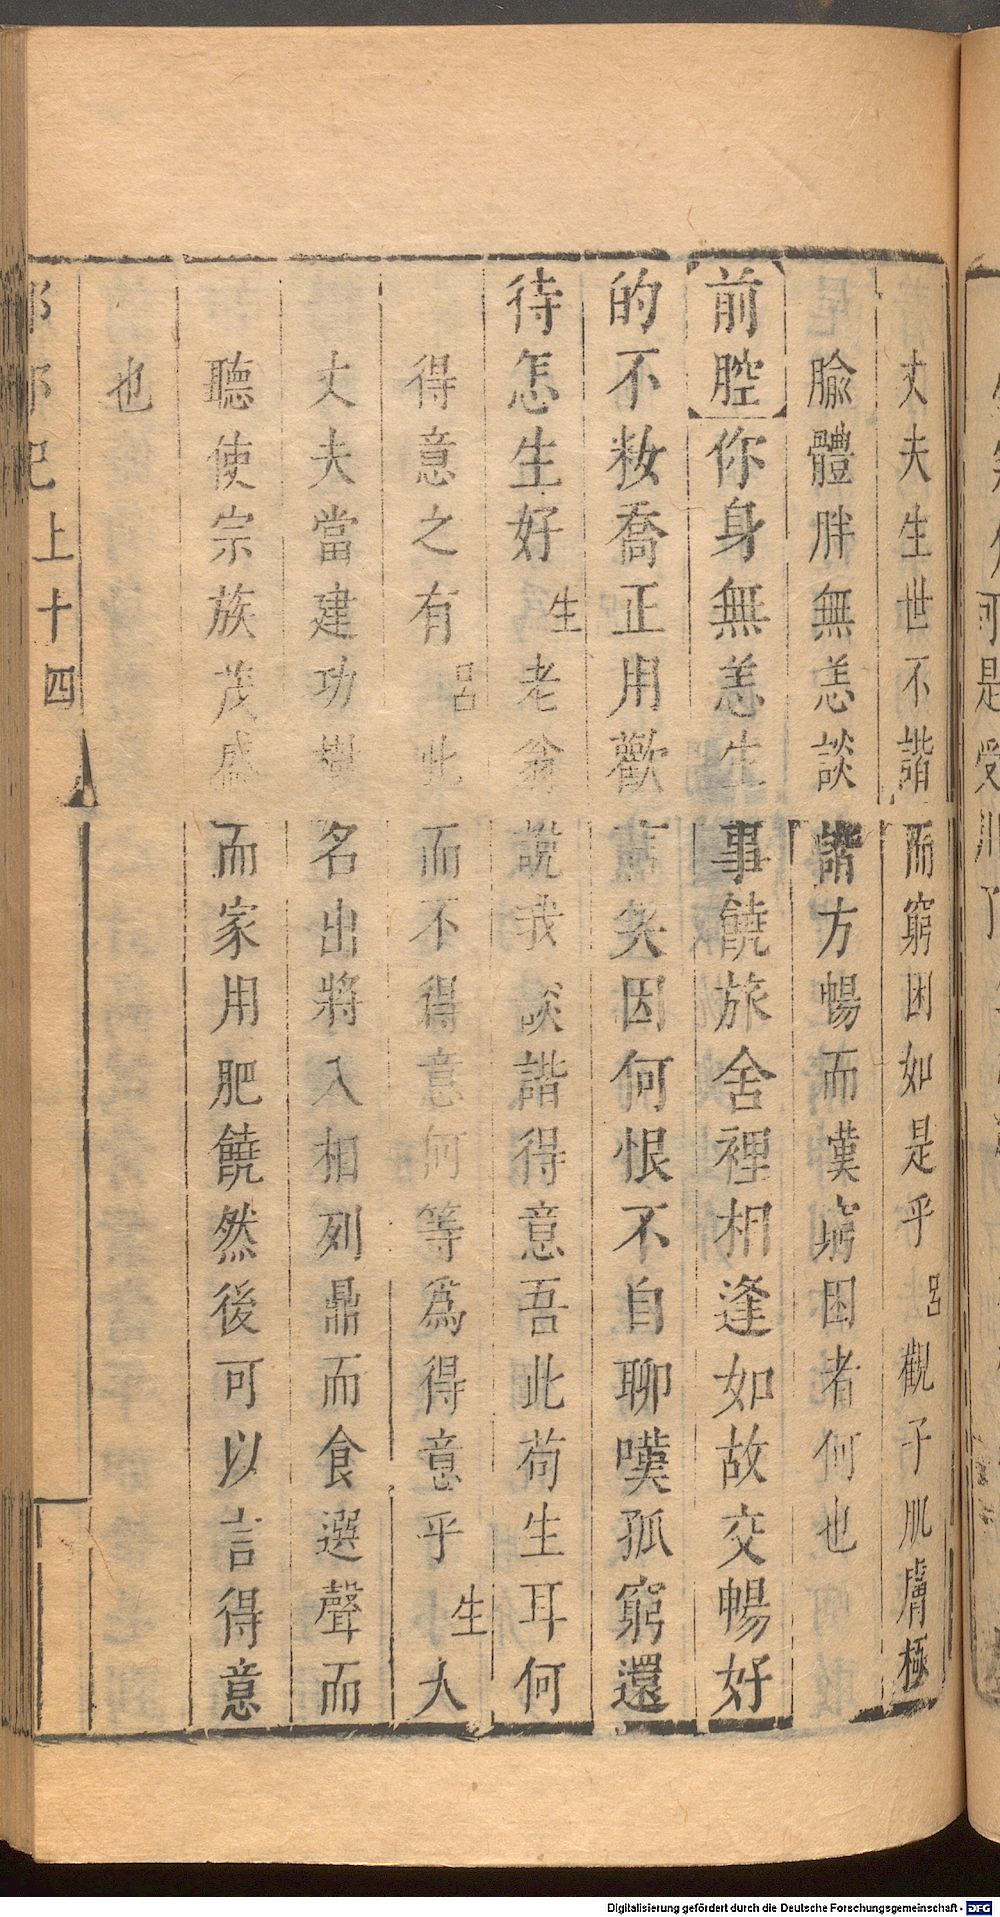 丈夫生世不諧而窮困如是乎呂觀子肌膚極
腴體胖無恙談諧方暢而嘆窮困者何也
前腔你身無恙生事饒旅舍裡相逢如故交暢好
的不妝喬正用歡言笑因何恨不自聊嘆孤窮還
待怎生好生老翁說我談諧得意吾此苟生耳何
得意之有呂此而不得意何等為得意乎生大
丈夫當建功樹名出將入相列鼎而食選聲而
聽使宗族茂盛而家用肥饒然後可以言得意
也
記上十四
Digitalisierung gefördert durch die Deutsche Forschungsgemeinschaft - DFG